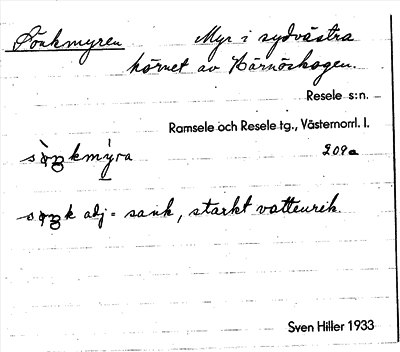 Sönkmyren Myr i sydvästra
hörnet av Härnöskogen.
Resele s:n.
Ramsele och Resele tg., Västernorrl. l.
209a
adj = sank, starkt vattenrik.
Sven Hiller 1933